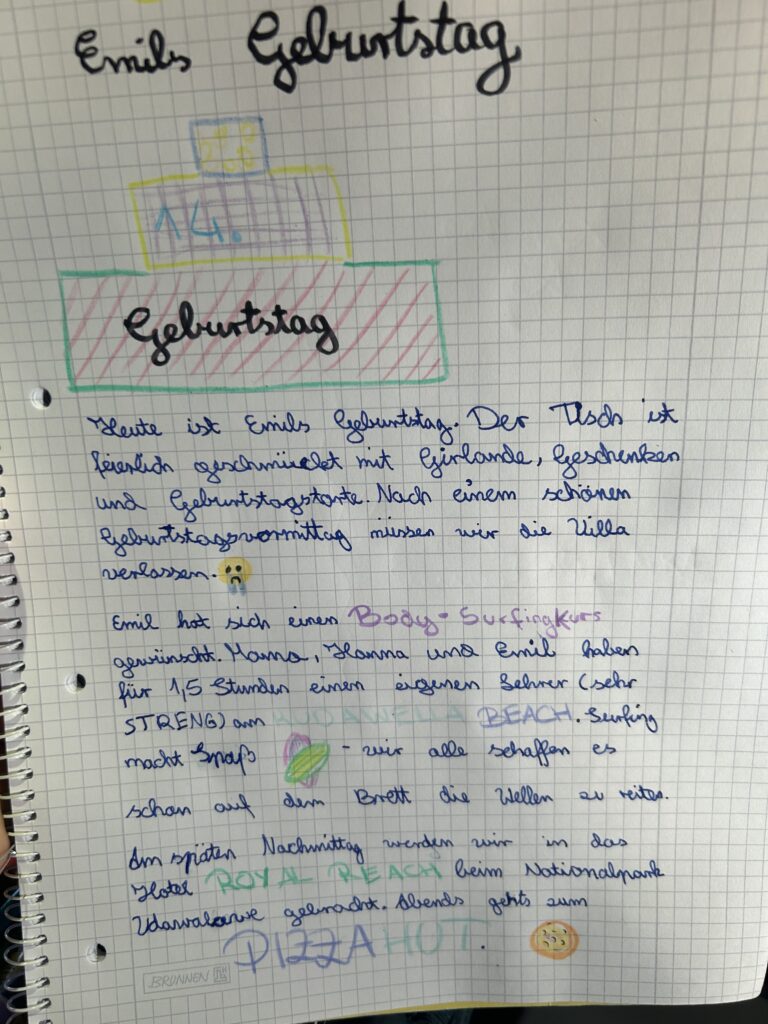 Emils Geburtstag
14.
Geburtstag
Heute ist Emils Geburtstag. Der Tisch ist
feierlich geschmückt mit Girlande, Geschenken
und Geburtstagstorte. Nach einem schönen
Geburtstagsvormittag müssen wir die Villa
verlassen.
Emil hat sich einen Body-Surfingkurs
gewünscht. Mama, Hanna und Emil haben
für 1,5 Stunden einen eigenen Lehrer (sehr
STRENG) am HUDAWELLA BEACH. Surfing
macht Spaß - wir alle schaffen es
schon auf dem Brett die Wellen zu reiten.
Am späten Nachmittag werden wir in das
Hotel ROYAL REACH beim Nationalpark
Udawalawe gebracht. Abends gehts zum
PIZZA HUT.
BRUNNEN